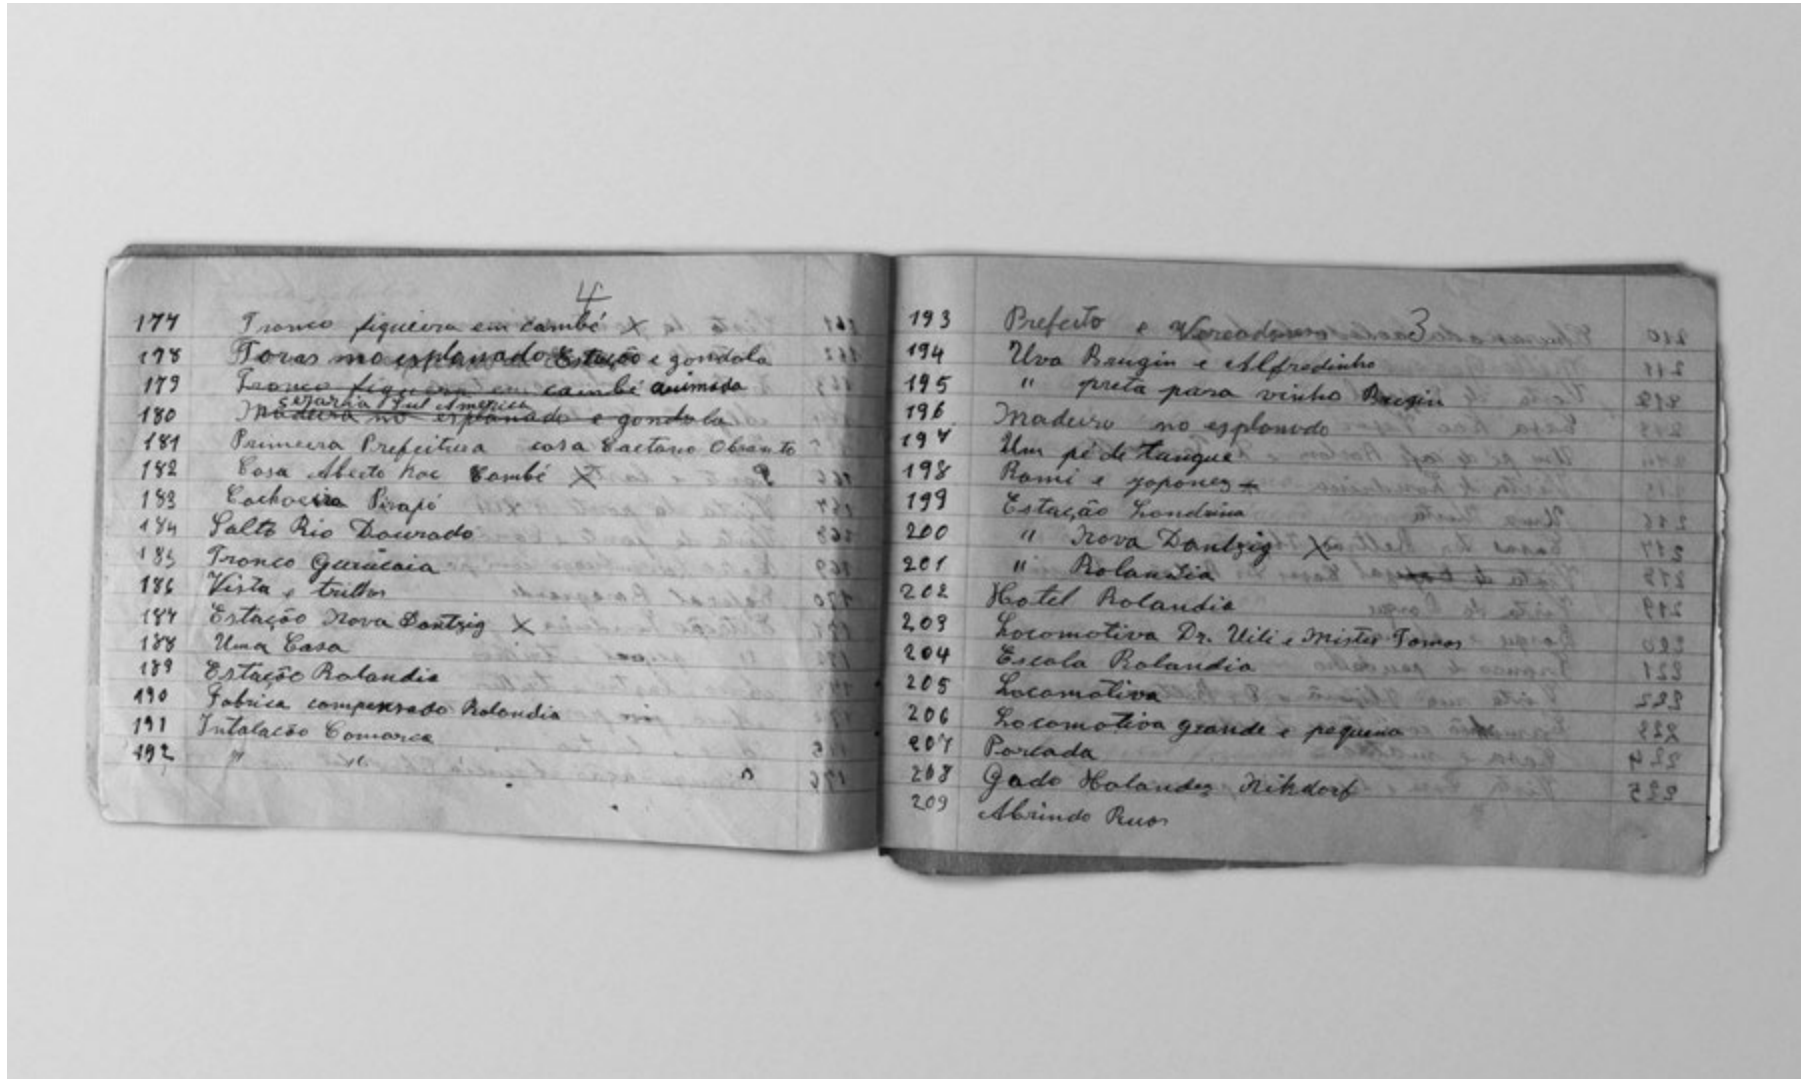 4
177 Tronco figueira em cambé X
178 Toras no esplanado Estação e gondola
179 Tronco figueira em cambé animada
seraria Sul America
180 Madeira no esplanado e gondola
181 Primeira Prefeitura casa Caetano
182 Casa Cambé X
183 Cachoeira Pirapó
184 Salto Rio Dourado
185 Tronco Guaiçaia
186 Vista e trilhos
187 Estação Nova Dantzig X
188 Uma Casa
189 Estação Rolandia
190 Fabrica compensado Rolandia
191 Intalacão Comarca
192 " "
3
193 Prefeito e Vereadores
194 Uva Brugin e Alfredinho
195 " preta para vinho Brugin
196 Madeira no esplanado
197 Um pé de tungue
198 Rami e japonez
199 Estação Londrina
200 " Nova Dantzig X
201 " Rolandia
202 Hotel Rolandia
203 Locomotiva Dr. Uili e Mister Tomas
204 Escola Rolandia
205 Locomotiva
206 Locomotiva grande e pequena
207 Porcada
208 Gado Holandez Nikdorf
209 Abrindo Ruas